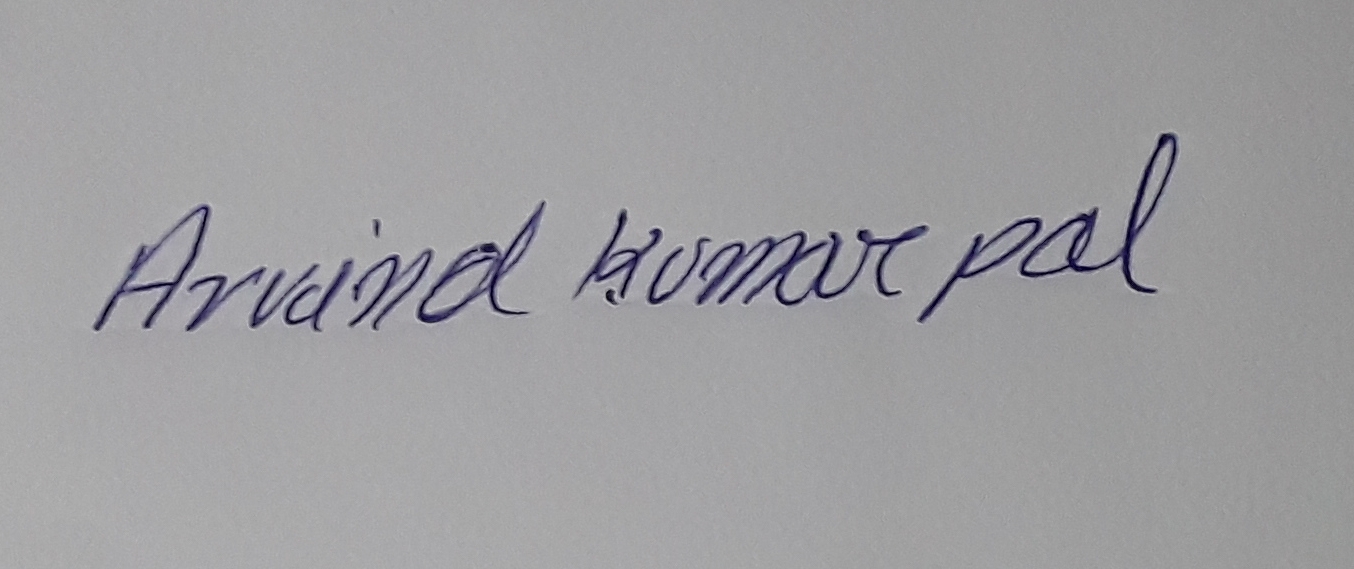 Arvind kumar pal